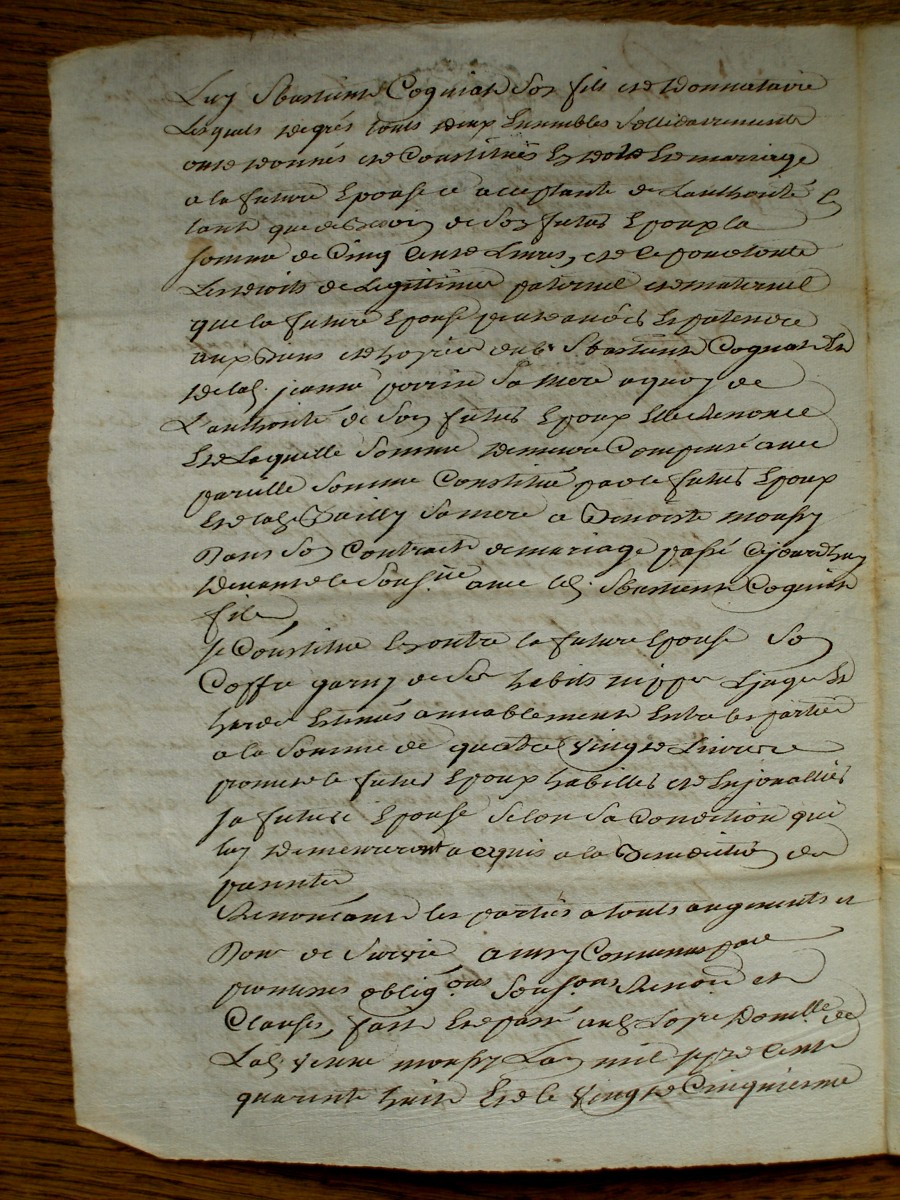 Luy Sbastient Coquiart Son fils et donnataire
Lesquels degrés touts deux Ensembles Sollidairement
ont donnés et Constitués En dote Et mariage
a la future Epouse ce acceptante de Lauthorité
tant que de besoin de Son futur Epoux la
somme de Cinq Cent Livres, et ce pour touts
Les droits de Legitime paternel et maternel
que la future Epouse peut avoir Et pretendre
aux biens et hoyrie dud. Sbastient Coquart Et
de lad. jeanne perrin Sa mere a quoy de
L'authorité de Son futur Epoux Elle Renonce
Et Laquelle Somme demeure Compensé avec
pareille Somme Constitué par le futur Epoux
Et lad. Sa mere a Benoiste monssy
Dans Son Contract de mariage passé cejourdhuy
devant le Sousné. avec led. Sbastient Coquiart
fils,
se Constitue En outre la future Epouse Son
Coffre garny de Ses habits nippes Et
hardes Estimés amiablement Entre les parties
a la Somme de quatre vingt Livres
promet le futur Epoux habiller et Enjoualler
sa future Epouse Selon Sa Condition qui
luy demeureront acquis a la Benediction des
parents
Renonceant les parties a touts augments et
Dons de Survie ainsy Convenus par
promesses obligons. Soumons. Renon et
Clauses, fait Et passé aud. domille. de
Lad. veuve monssy Lan mil sept cent
quarente huit Et le vingt Cinquiesme